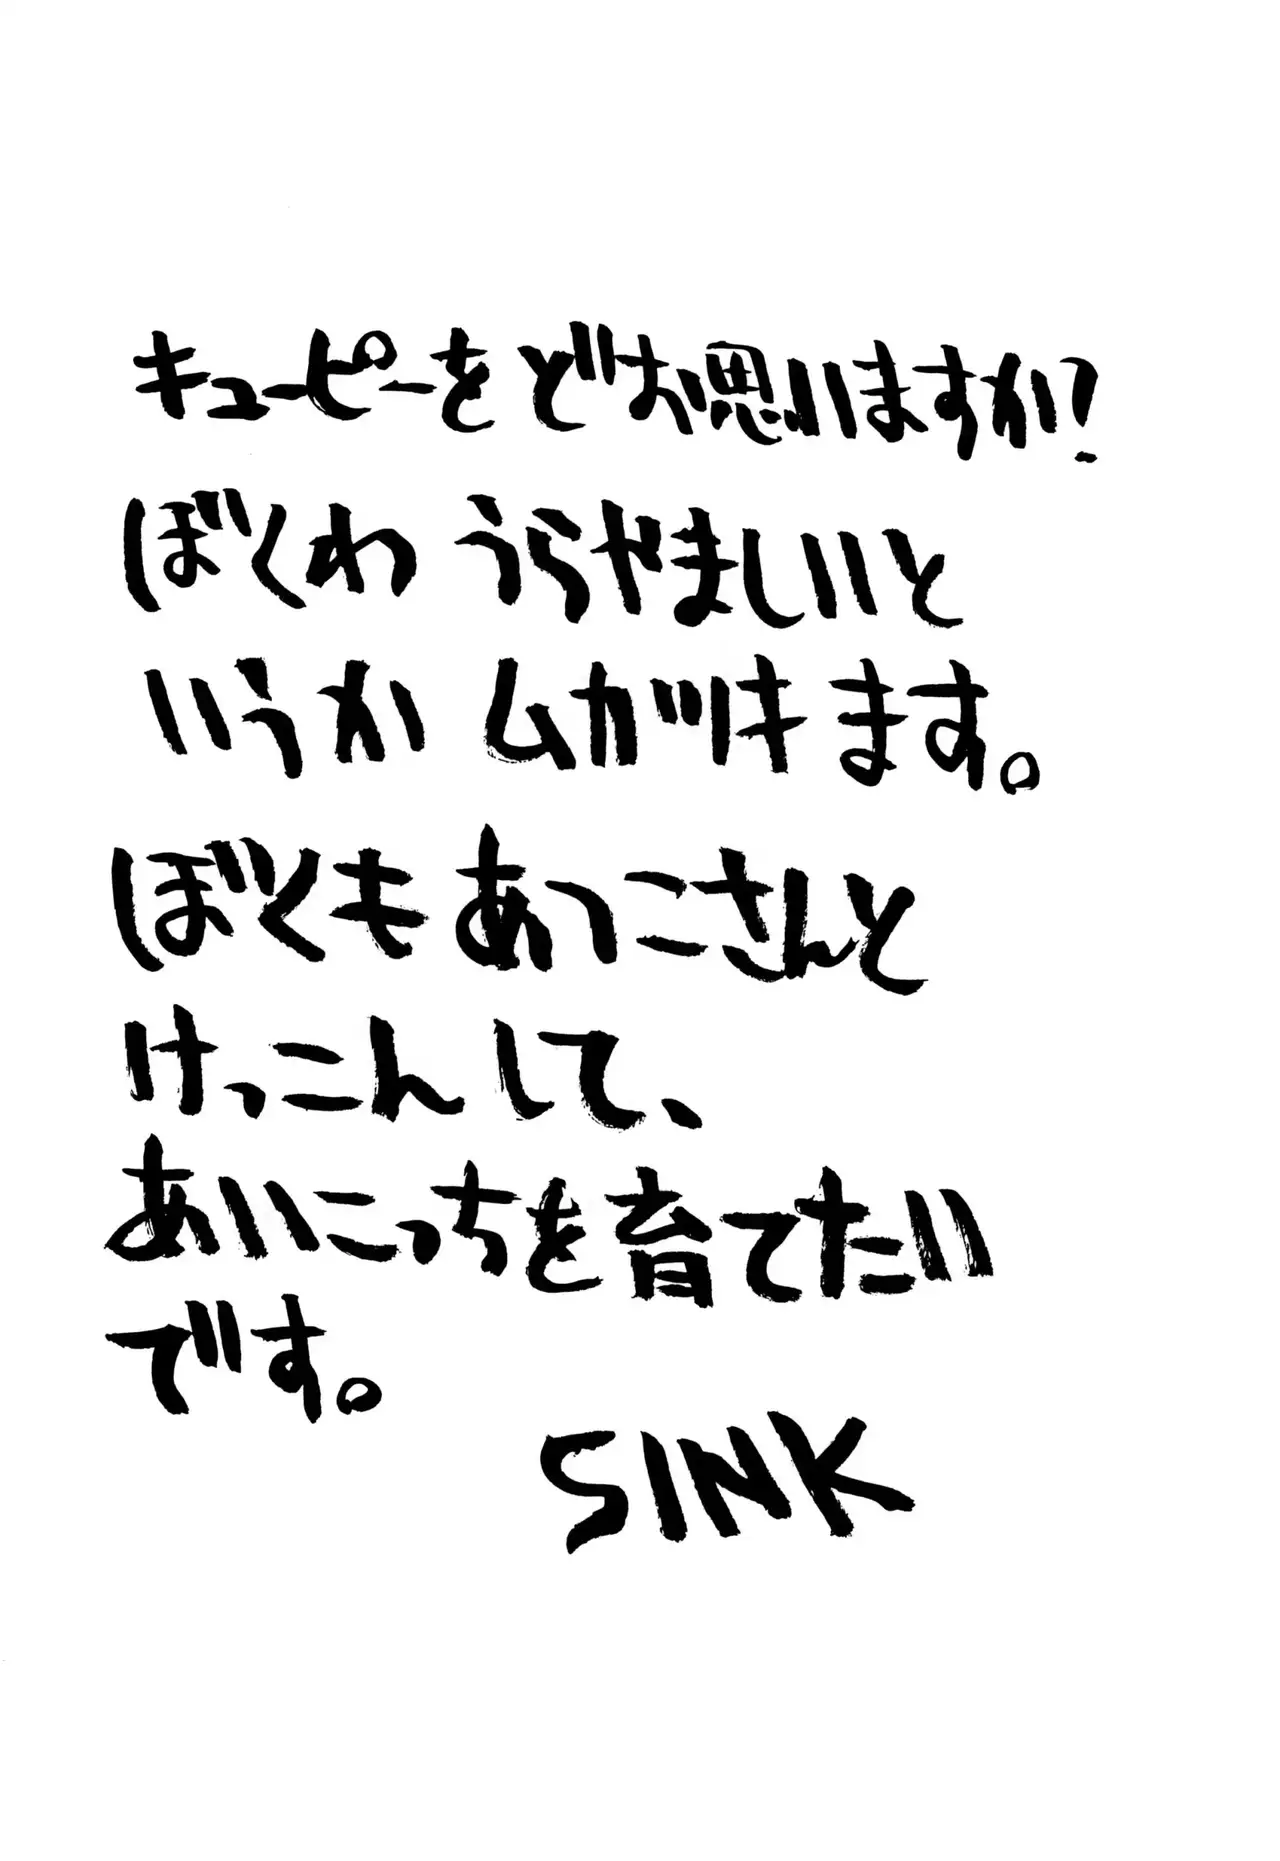 キューピーをどお思いますか?
ぼくわ うらやましいと
いうか ムカツキます。
ぼくも あつこさんと
けっこんして、
あいこっちを育てたい
です。
SINK